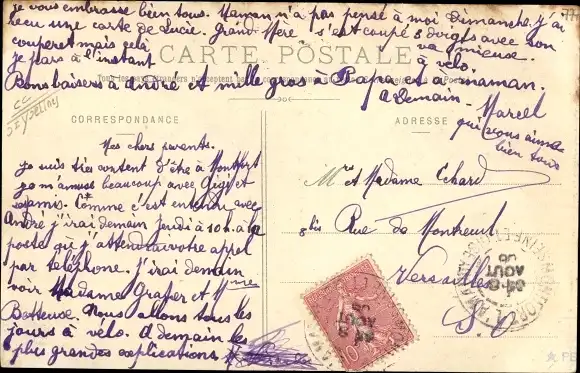 je vous embrasse bien tous. Maman n'a pas pensé à moi dimanche. j'ai
recu une carte de Lucie. Grand Mère s'est coupé 3 doigts avec son
couperet mais cela va mieux.
je pars à l'instant à vélo.
CARTE POSTALE
Tous les pays étrangers n'acceptent pas la correspondance
Bons baisers à André et mille gros à Papa et à maman.
A demain. Marcel
qui vous aime
bien tous
CORRESPONDANCE
ADRESSE
Mes chers parents.
je suis très content d'être à Montfort
je m'amuse beaucoup avec Gigi et
Comme c'est entendu avec
André j'irai demain jeudi à 10h. à la
poste où j'attendrai votre appel
par téléphone. J'irai demain
voir Madame et Mme
Nous allons tous les
jours à vélo. A demain les
plus grandes explications.
Mr et Madame Echard
8bis Rue de Montreuil
Versailles
S. O
AOUT